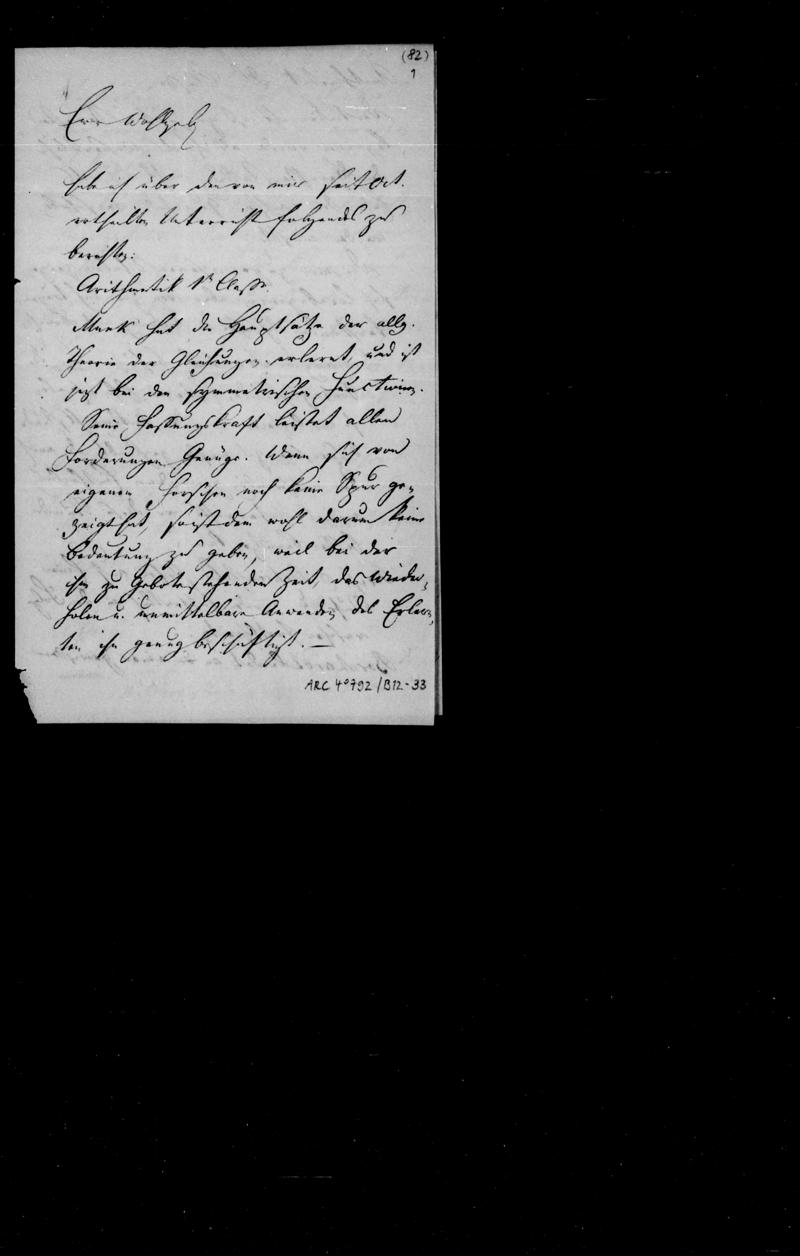 (82)
1
Ew. Wohlgeb
habe ich über den von mir seit Oct.
ertheilten Unterricht folgendes zu
berichten:
Arithmetik 1r Classe.
Munk hat die Hauptsätze der allg.
Theorie der Gleichungen erlernt, und ist
jetzt bei den symmetrischen Functionen.
Seine Fassungskraft leistet allen
Forderungen Genüge. Wenn sich von
eigenem Forschen noch keine Spur ge-
zeigt hat, so ist dem wohl darum keine
Bedeutung zu geben, weil bei der
ihm zu Gebote stehenden Zeit, das Wieder-
holen u. unmittelbare Anwenden des Erlern-
ten ihn genug beschäftigt. —
ARC 4°792/B12-33